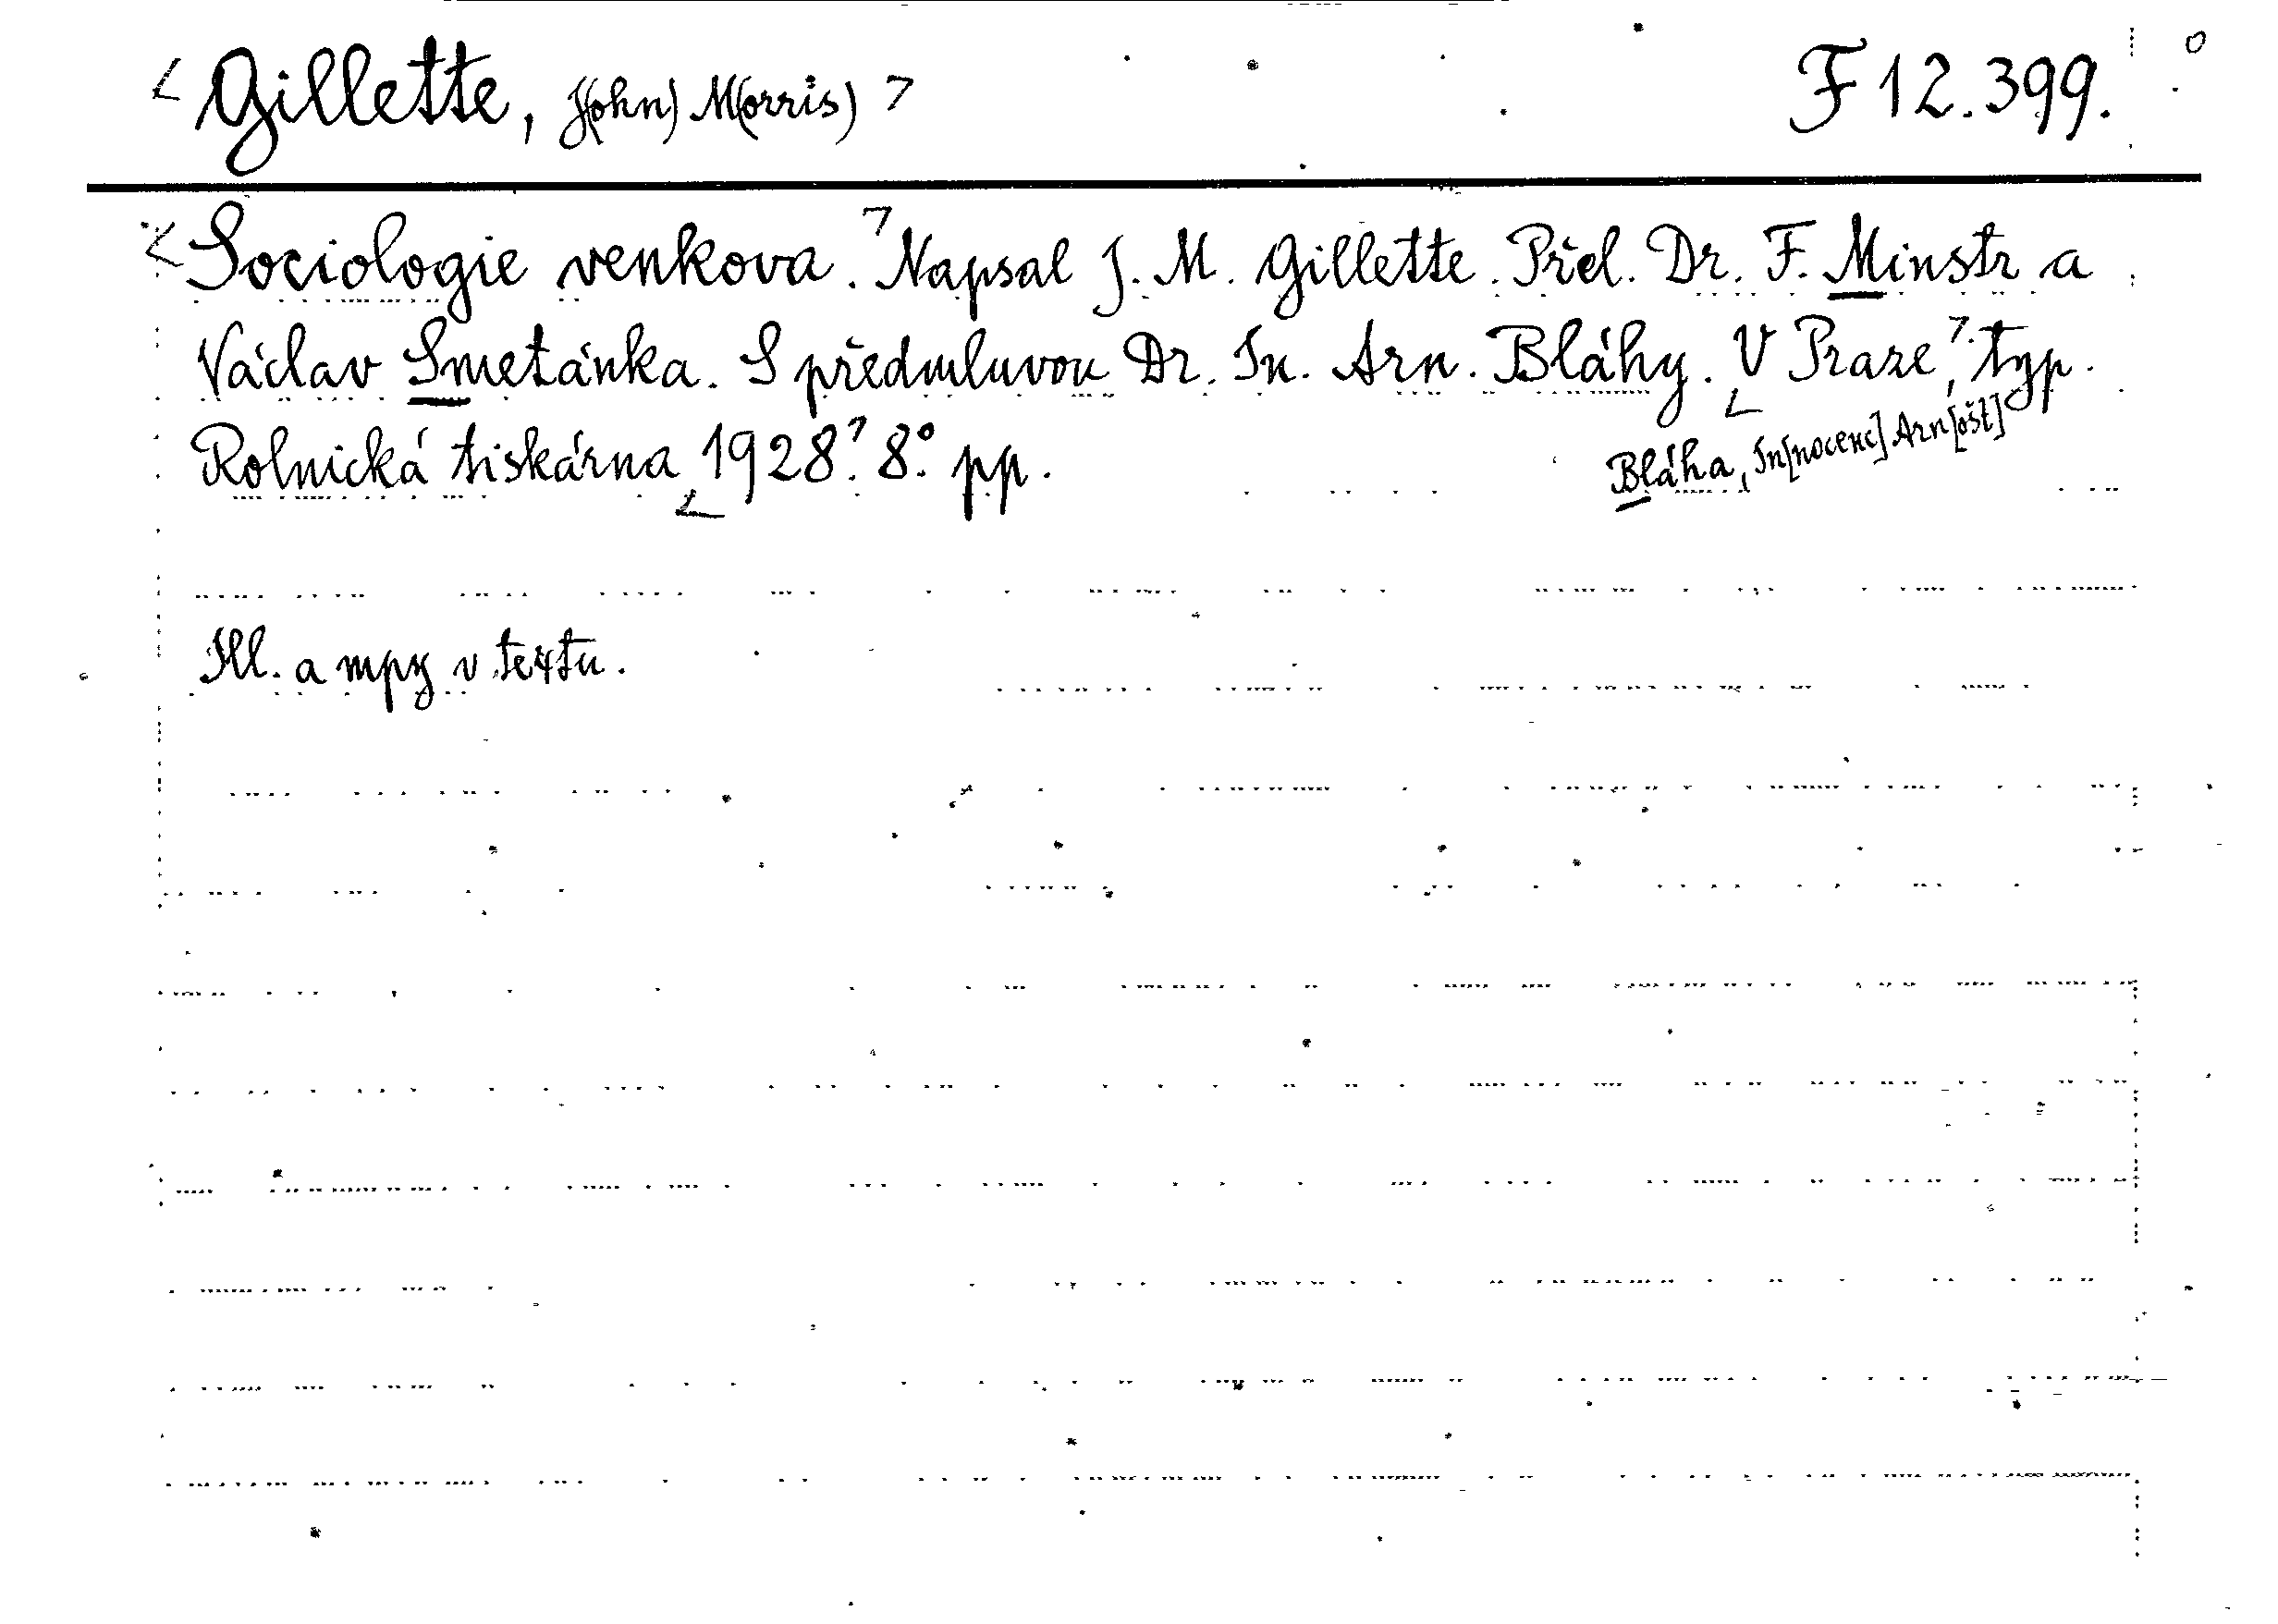 Gillette, J(ohn) M(orris) F 12.399.
Sociologie venkova. Napsal J. M. Gillette. Přel. Dr. F. Minstr a
Václav Smetánka. S předmluvou Dr. In. Arn. Bláhy. V Praze, typ.
Rolnická tiskárna 1928. 8° pp.
Bláha, In[nocenc] Arn[ošt]
Ill. a mpy v textu.